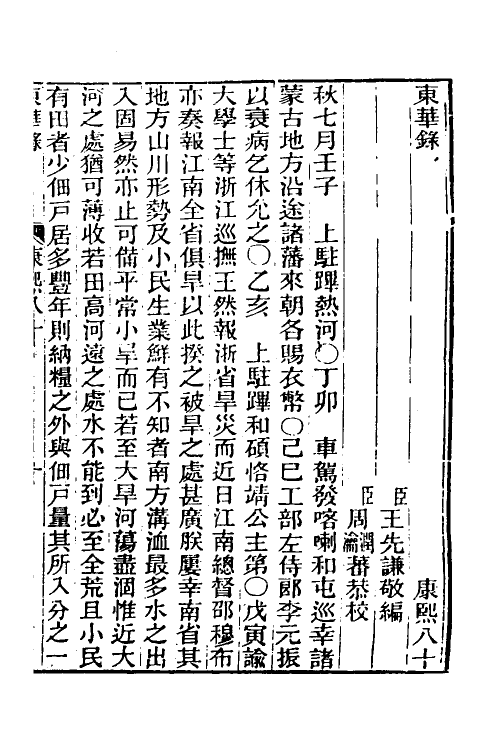 東華錄　康熙八十
臣王先謙敬編
臣周潤蕃周瀹蕃恭校
秋七月壬子　上駐蹕熱河○丁卯　車駕發喀喇和屯巡幸諸
蒙古地方沿途諸藩來朝各賜衣幣○己巳工部左侍郎李元振
以衰病乞休允之○乙亥　上駐蹕和碩恪靖公主第○戊寅諭
大學士等浙江巡撫王然報浙省旱災而近日江南總督邵穆布
亦奏報江南全省俱旱以此揆之被旱之處甚廣朕屢幸南省其
地方山川形勢及小民生業鮮有不知者南方溝洫最多水之出
入固易然亦止可備平常小旱而已若至大旱河蕩盡涸惟近大
河之處猶可薄收若田高河遠之處水不能到必至全荒且小民
有田者少佃戶居多豐年則納糧之外與佃戶量其所入分之一
東華錄　康熙八十　一